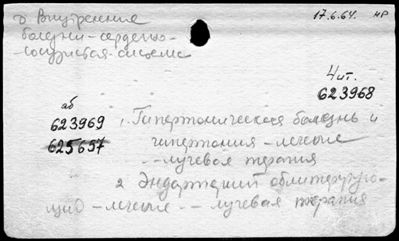 Внутренние 17.6.64. НР
болезни - сердечно-
сосудистая система
Чит.
623968
аб
623969 1. Гипертоническая болезнь и
625657 гипертония - лечение
- - лучевая терапия
2 Эндартериит облитерирую-
щий - лечение - - лучевая терапия